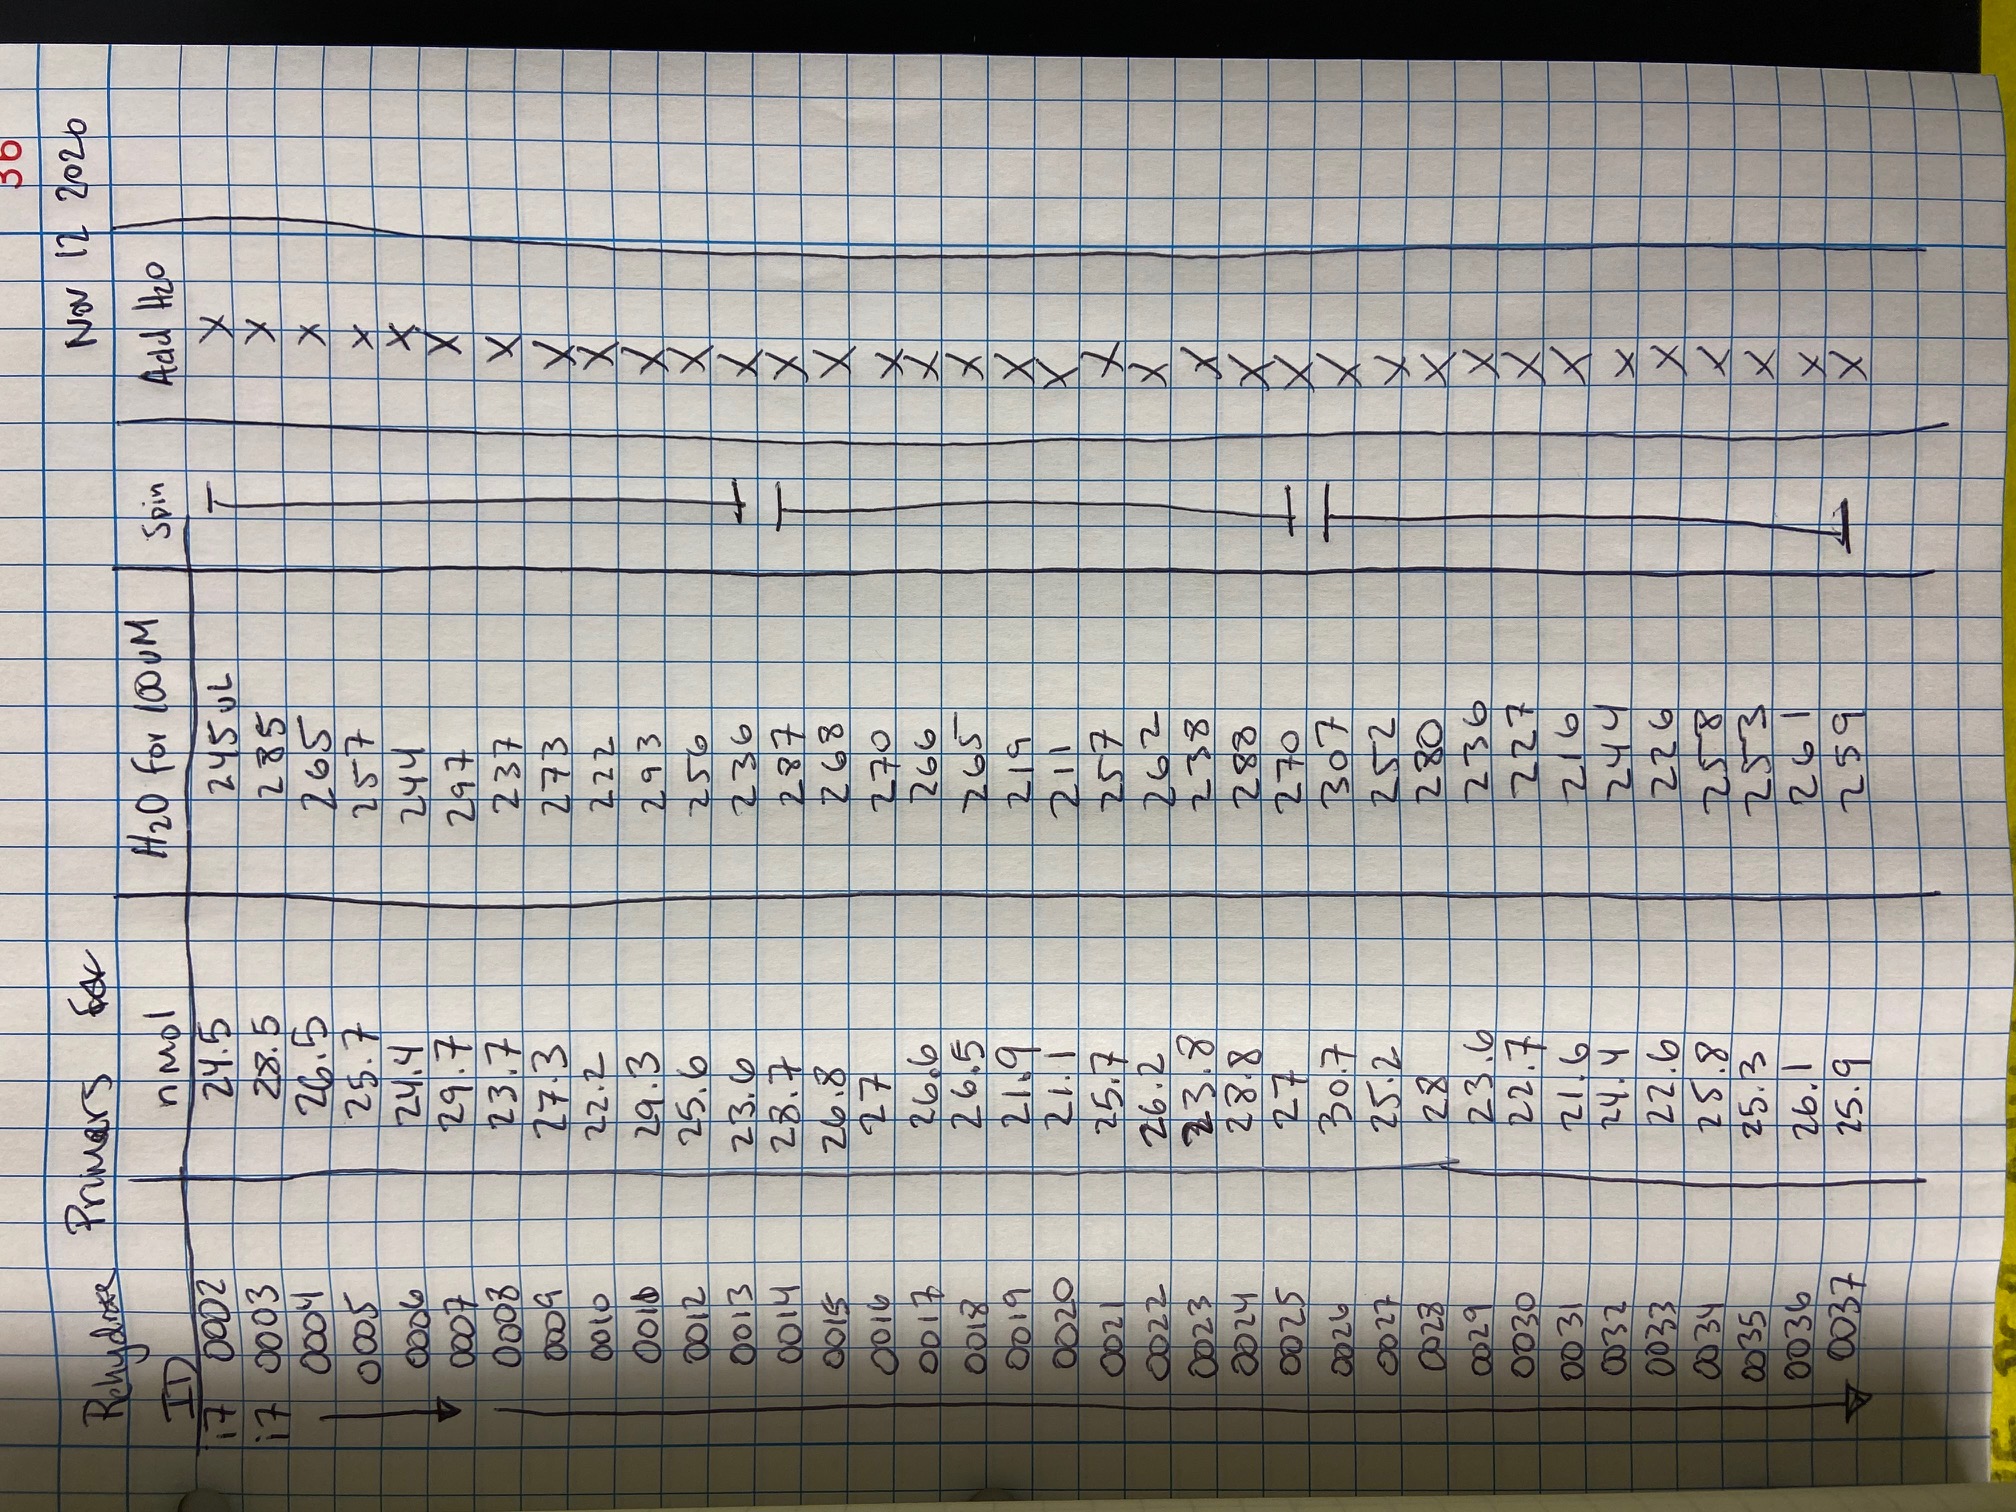 36
Nov 12 2020
Rehydrate Primers For
ID nmol H2O for 100uM Spin Add H2O
i7 0002 24.5 245 uL X
i7 0003 28.5 285 X
0004 26.5 265 X
0005 25.7 257 X
0006 24.4 244 X
0007 29.7 297 X
0008 23.7 237 X
0009 27.3 273 X
0010 22.2 222 X
0011 29.3 293 X
0012 25.6 256 X
0013 23.6 236 X
0014 28.7 287 X
0015 26.8 268 X
0016 27 270 X
0017 26.6 266 X
0018 26.5 265 X
0019 21.9 219 X
0020 21.1 211 X
0021 25.7 257 X
0022 26.2 262 X
0023 23.8 238 X
0024 28.8 288 X
0025 27 270 X
0026 30.7 307 X
0027 25.2 252 X
0028 28 280 X
0029 23.6 236 X
0030 22.7 227 X
0031 21.6 216 X
0032 24.4 244 X
0033 22.6 226 X
0034 25.8 258 X
0035 25.3 253 X
0036 26.1 261 X
0037 25.9 259 X